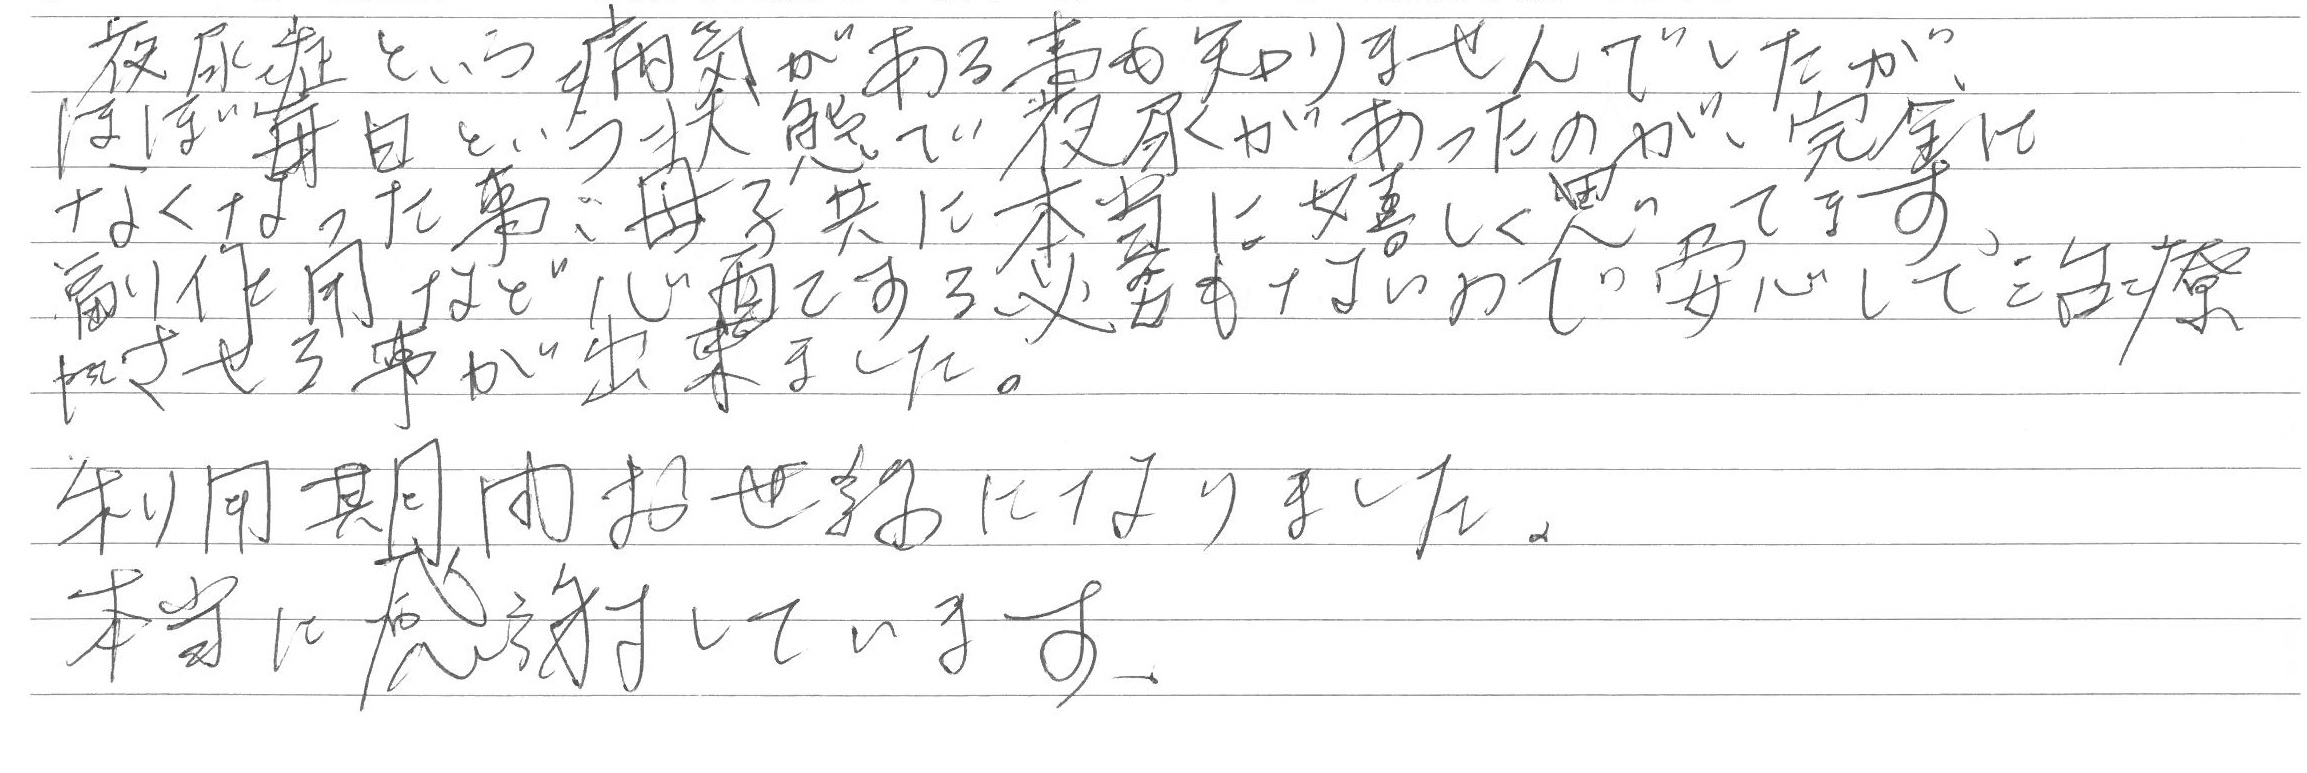 夜尿症という病気がある事も知りませんでしたが、
ほぼ毎日という状態で夜尿があったのが、完全に
なくなった事、母子共に本当に嬉しく思ってます。
副作用など心配する必要もないので安心して治療
させる事が出来ました。
利用期間中お世話になりました。
本当に感謝しています。